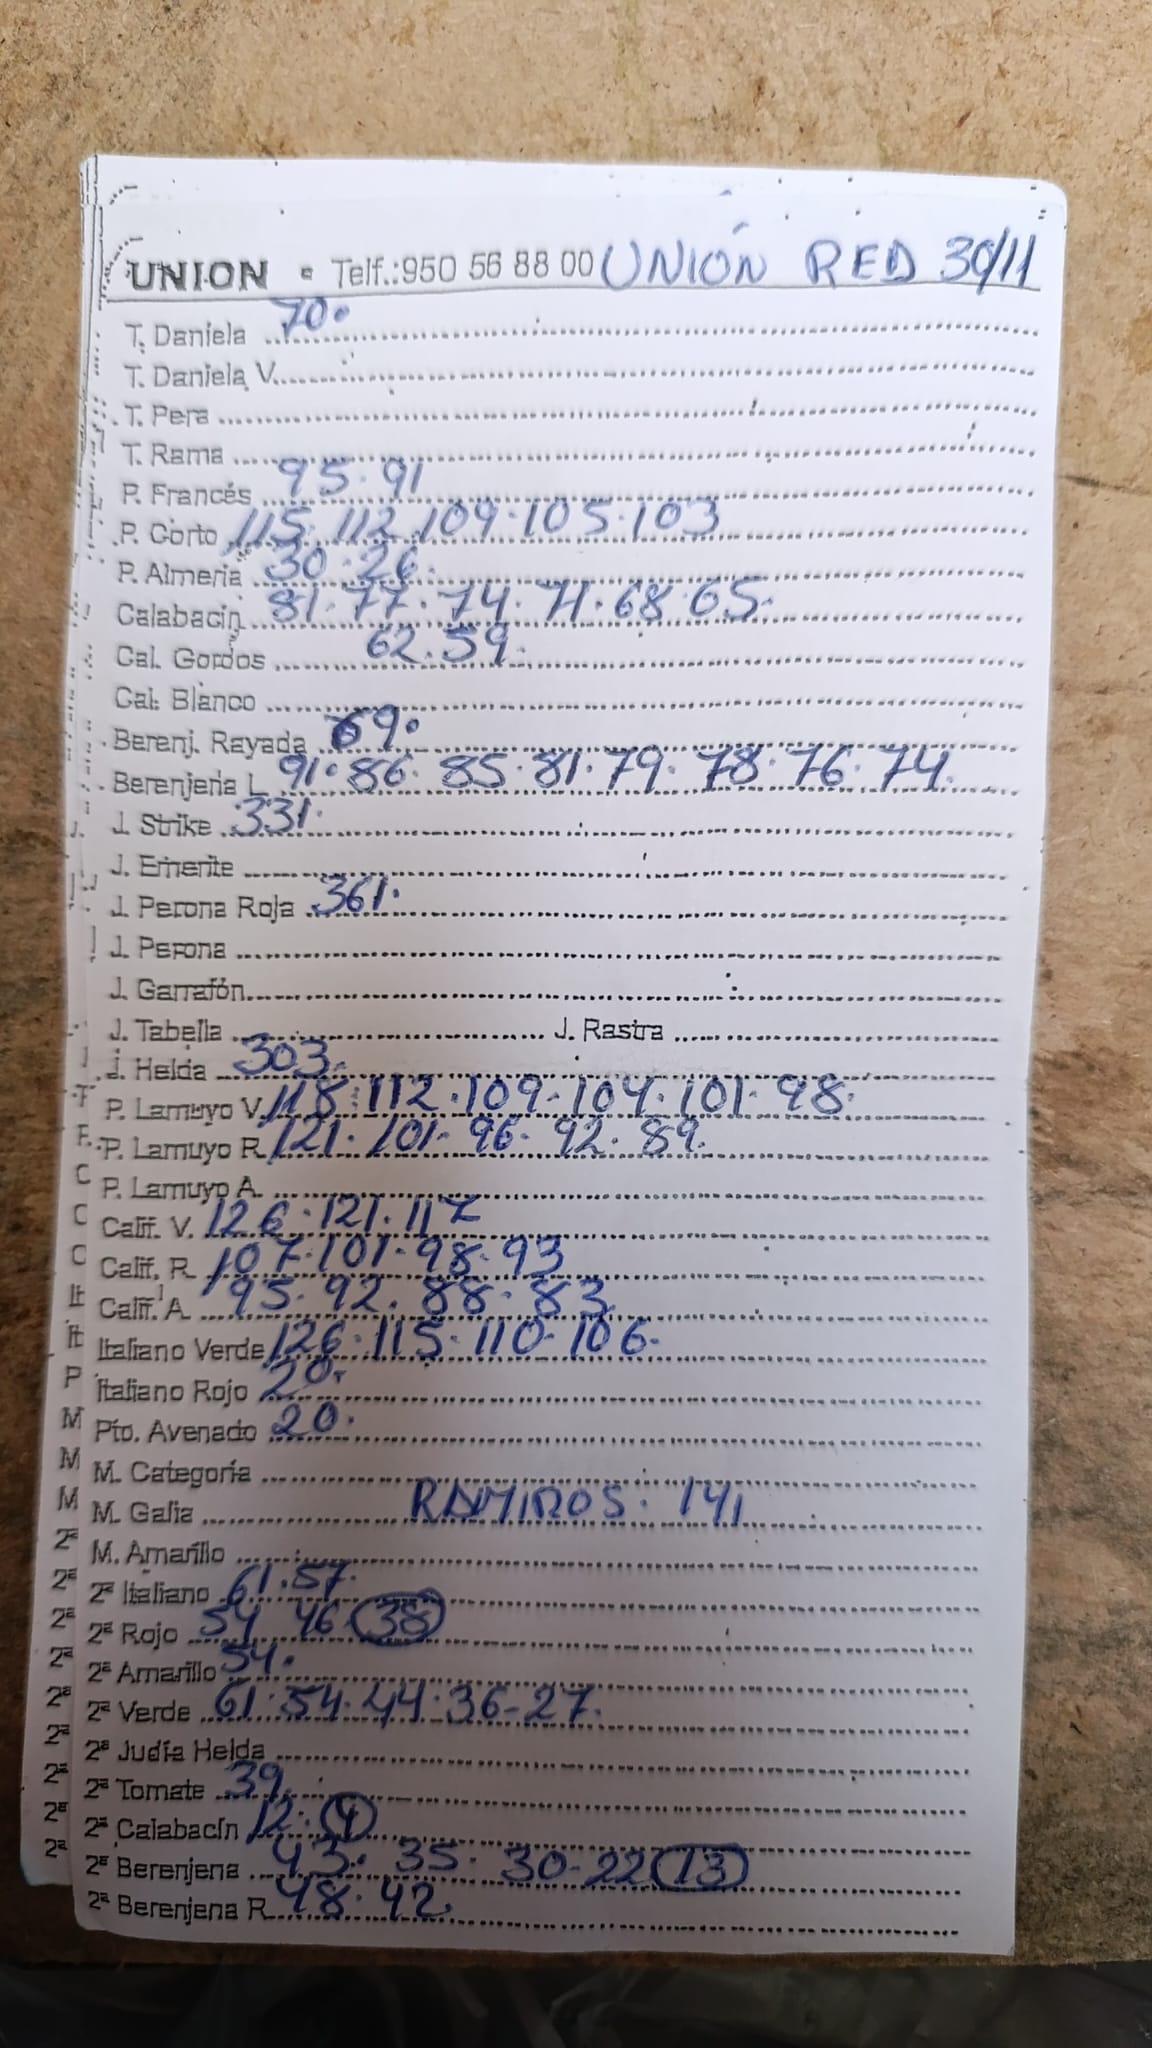 UNION • Telf.:950 56 88 00 UNIÓN RED 30/11
T. Daniela 70.
T. Daniela V.
T. Pera
T. Rama
P. Francés 95.91
P. Corto 115.112.109.105.103
P. Almería 30.26.
Calabacín 81.77.74.71.68.65.
Cal. Gordos 62.59.
Cal. Blanco
Berenj. Rayada 69.
Berenjena L 91.86.85.81.79.78.76.74.
J. Strike 331.
J. Emerite
J. Perona Roja 361.
J. Perona
J. Garrafón
J. Tabella J. Rastra
J. Helda 303.
P. Lamuyo V. 118.112.109-104.101.98.
P. Lamuyo R. 121.101-96.92.89.
P. Lamuyo A.
Calif. V. 126.121.117
Calif. R 107.101.98.93
Calif. A 95.92.88.83
Italiano Verde 126.115.110-106.
Italiano Rojo 20.
Pto. Avenado 20.
M. Categoría
M. Galia RAMIROS. 141
M. Amarillo
2ª Italiano 61.57.
2ª Rojo 54 46 38
2ª Amarillo 54.
2ª Verde 61.54.44.36-27.
2ª Judía Helda
2ª Tomate 39.
2ª Calabacín 12.4
2ª Berenjena 43.35.30-22 13
2ª Berenjena R 48.42.